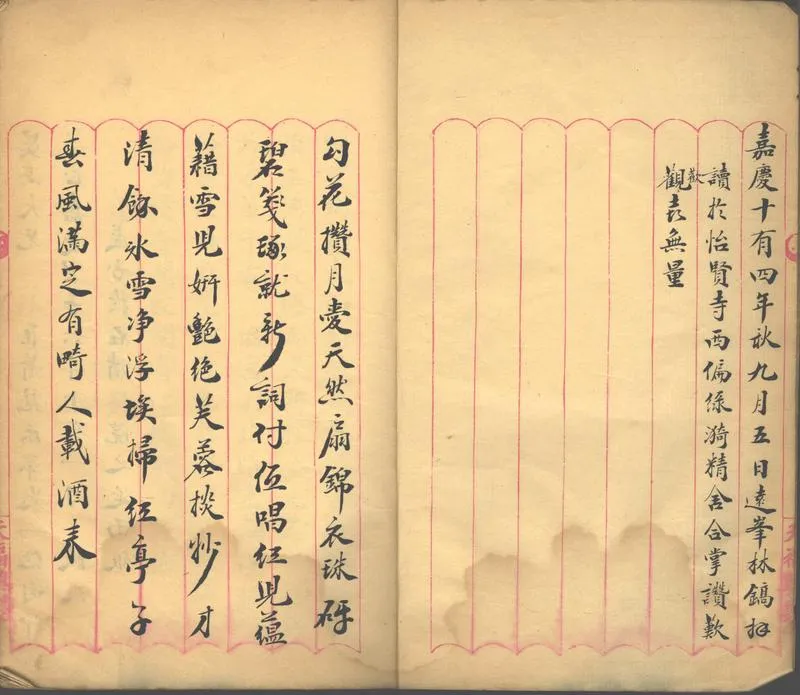 嘉慶十有四年秋九月五日遠峯林鎬拜
讀於怡賢寺西偏綠漪精舍合掌讚歎
歡觀喜無量
勾花攢月愛天然扇錦衣珠砑
碧箋琢就新詞付伍唱紅兒蘊
藉雪兒妍艷絕芙蓉掞妙才
清餘冰雪净浮埃掃紅亭子
春風滿定有畸人載酒来